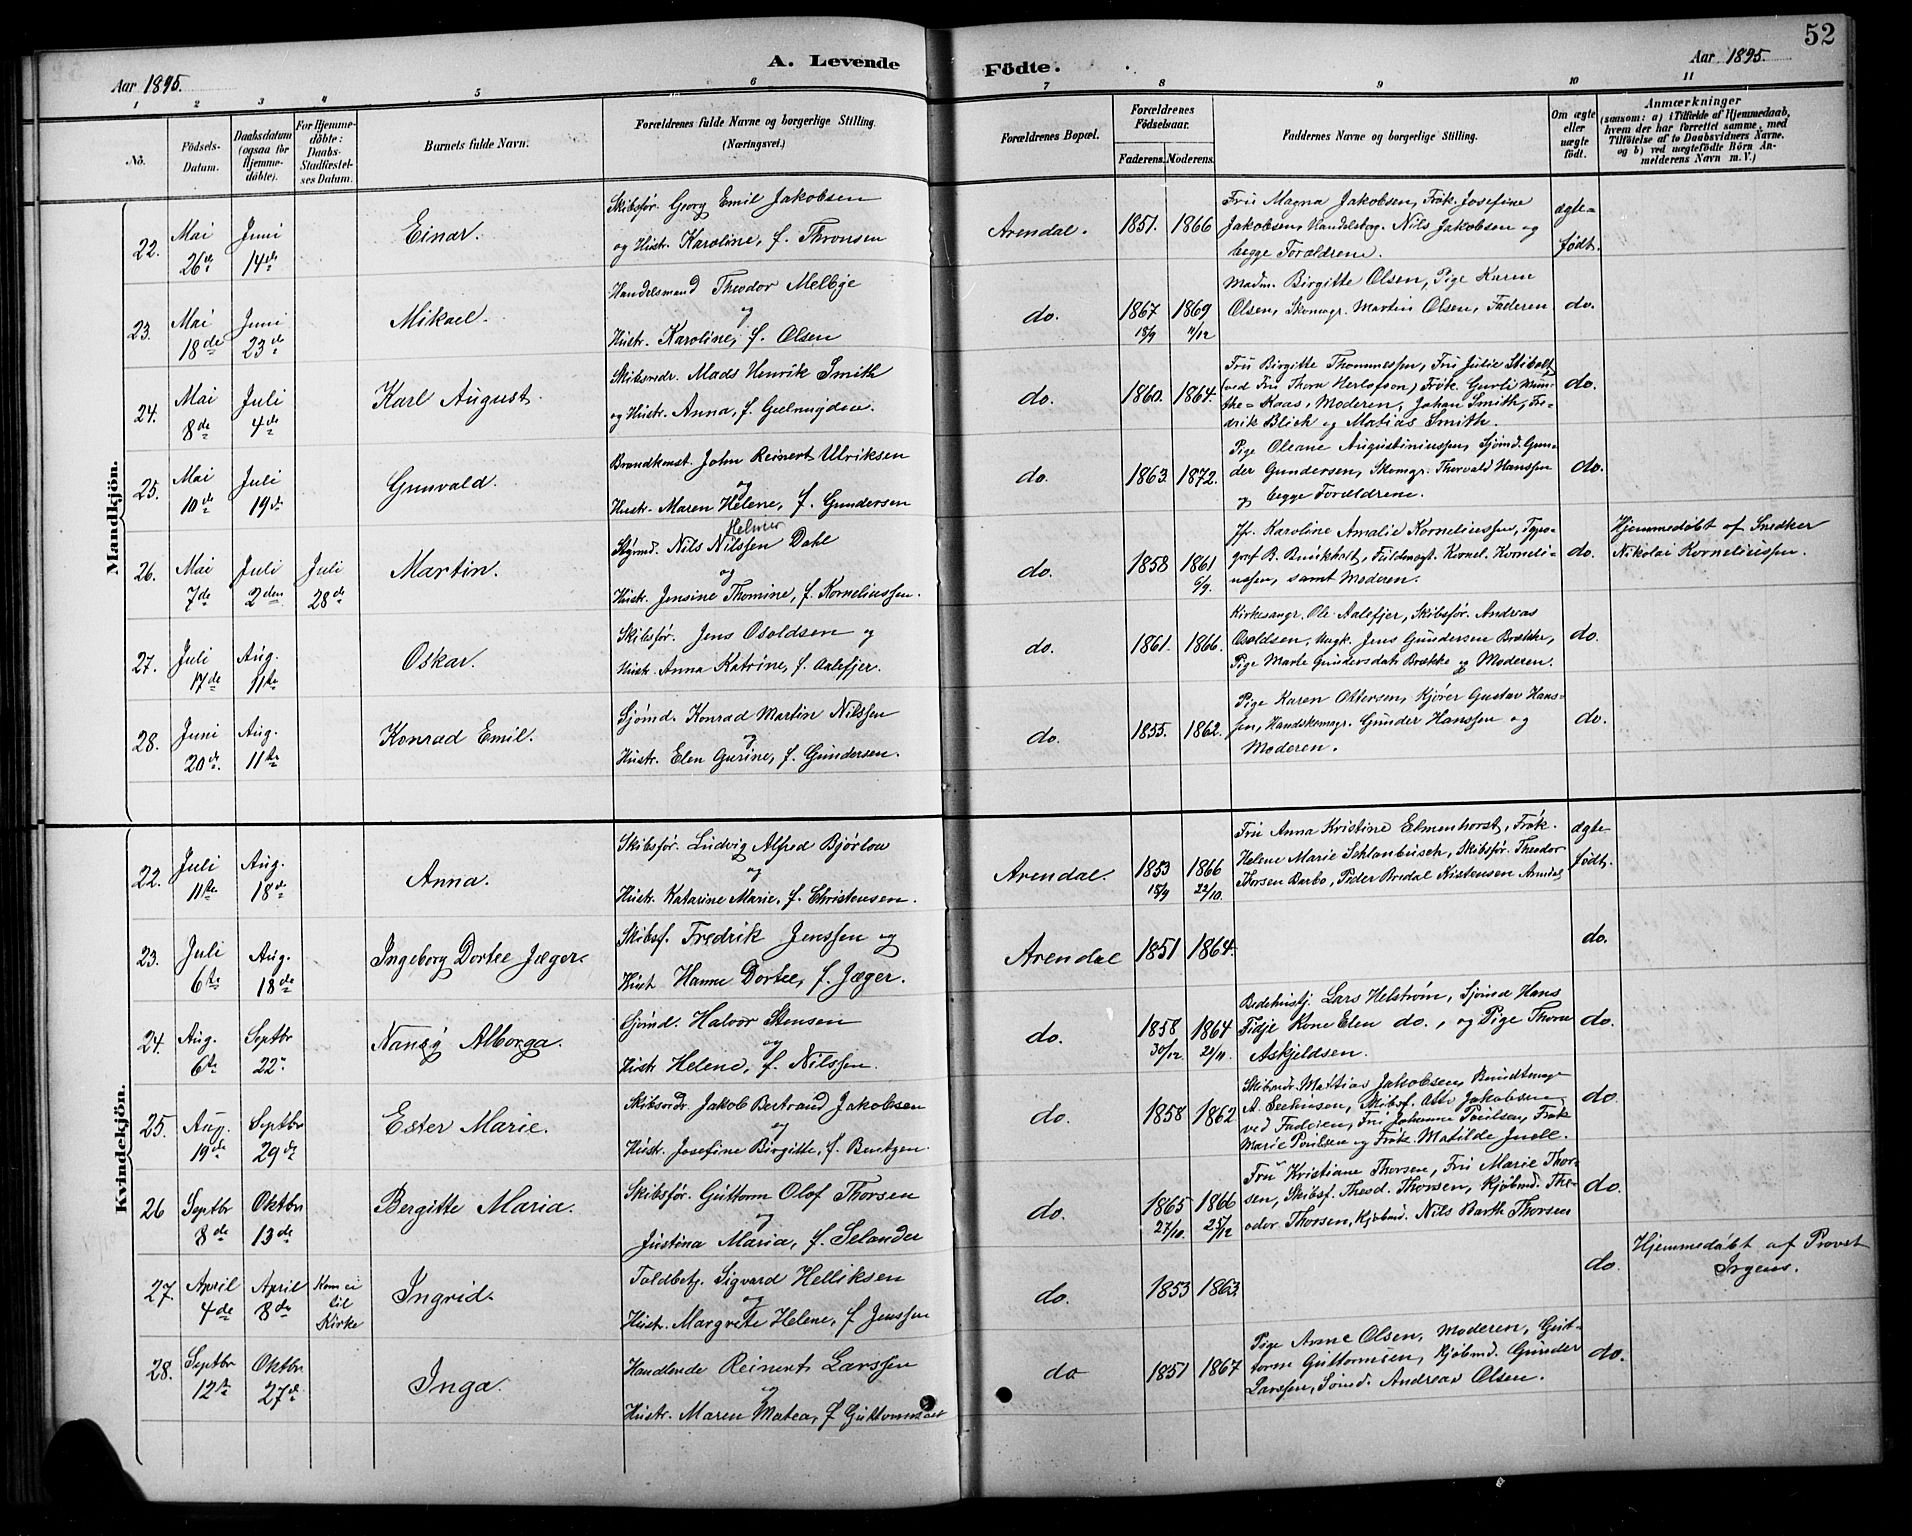 52
Aar 1895.
A. Levende
Födte.
Aar 1895.
1 2 3 4 5 6 7 8 9 10 11
No.
Födsels-
Datum.
Daabsdatum
(ogsaa for
Hjemme-
döbte).
For Hjemme-
döbte:
Daabs-
Stadfæstel-
ses Datum.
Barnets fulde Navn.
Forældrenes fulde Navne og borgerlige Stilling.
(Næringsvei.)
Forældrenes Bopæl.
Forældrenes
Födselsaar.
Faderens. Moderens.
Faddernes Navne og borgerlige Stilling.
Om ægte
eller
uægte
födt.
Anmærkninger
(saasom: a) i Tilfælde af Hjemmedaab,
hvem der har forrettet samme, med
Tilföielse af to Daabsvidners Navne.
og b) ved uægtefödte Börn An-
melderens Navn m. V.)
Mandkjön.
22. Mai 26de Juni 14de Einar.
Skibsfør. Georg Emil Jakobsen
og Hust. Karoline, f. Thronsen
Arendal. 1851. 1866
Fru Magna Jakobsen, Frøk. Josefine
Jakobsen, Handelsborg. Nils Jakobsen og
begge Forældrene.
ægte-
født.
23. Mai 18de Juni 23de Mikael.
Handelsmand Theodor Melbye
og
Hustr. Karoline, f. Olsen
do. 1867 18/9 1869 11/12
Madm. Birgitte Olsen, Pige Karen
Olsen, Skomagr. Martin Olsen, Faderen
do.
24. Mai 8de Juli 4de Karl August.
Skibsredr. Mads Henrik Smith
og Hustr. Anna, f.
do. 1860. 1864.
Fru Birgitte Thommessen, Fru Julie Stibolt
(ved Fru Thora Herlofson) Frøk. Gunli Mun-
the-Kaas, Moderen, Johan Smith, Fre-
drik Blich og Matias Smith.
do.
25. Mai 10de Juli 19de Gunvald.
Brandkonst. John Reinert Ulriksen
og
Hustr. Maren Helene, f. Gundersen
do. 1863. 1872.
Pige Oleane Augustiniussen, Sjømd. Gun-
der Gundersen, Skomgr. Thorvald Hanssen
og begge Forældrene.
do.
26. Mai 7de Juli 2den Juli 28de Martin.
Helmer
Styrmd. Nils Nilssen Dahl
og
Hustr. Jensine Thomine, f. Korneliussen.
do. 1858 1861 6/9.
Jfr. Karoline Amalie Korneliussen, Typo-
graf B. Fuldmægt. Kornel. Korneli-
ussen, samt Moderen.
do.
Hjemmedøbt af Snedker
Nikolai Korneliussen.
27. Juli 17de Aug. 11te Oskar.
Skibsfør. Jens Osoldsen og
Hustr. Anna Katrine, f. Aalefjer.
do. 1861. 1866.
Kirkesangr. Ole Aalefjer, Skibsfør. Andreas
Osoldsen, Ungk. Jens Gundersen Brække,
Pige Marte Gundersdatr Brække og Moderen.
do.
28. Juni 20de Aug. 11te Konrad Emil.
Sjømd. Konrad Martin Nilssen
og
Hustr. Elen Gurine, f. Gundersen.
do. 1855. 1862.
Pige Karen Ottersen, Kjører Gustav Hans-
sen, Handskemagr. Gunder Hanssen og
Moderen.
do.
Kvindekjön.
22. Juli 11te Aug. 18de Anna.
Skibsfør. Ludvig Alfred Bjørlow
og
Hustr. Katarine Marie, f. Christensen.
Arendal. 1853 15/9 1866 22/10.
Fru Anna Kristine Elmenhorst, Frøk.
Helene Marie Schlanbusch, Skibsfør. Theodor
Thorsen Barbo, Peder Bredal Kistensen Arndal
ægte
født.
23. Juli 6te Aug. 18de Ingeborg Dortee Jæger.
Skibsf. Fredrik Jenssen og
Hust Hanne Dortee, f. Jæger.
Arendal 1851 1864.
do.
24. Aug. 6te Septbr 22. Nansy Alborga.
Sjømd. Halvor Stensen
og
Hustr Helene, f. Nilssen.
do. 1858 30/12. 1864 21/11.
Bedehustj. Lars Helstrøm, Sjømd Hans
Fidje Kone Elen do., og Pige Thora
Askjeldsen.
do.
25. Aug. 19de Septbr 29de Ester Marie.
Skibsredr Jakob Bertrand Jakobsen
og
Hustr. Josefine Birgitte, f. Bentzen.
do. 1858 1862
Skibsredr. Mattias Jakobsen, Bundtmager
A. Seehusen, Skibsf. Otto Jakobsen
ved Faderen, Fru Johanne Poulsen, Frøk
Marie Poulsen og Frøk. Matilde Juell.
do.
26 Septbr 8de Oktbr 13de Bergitte Maria.
Skibsfør. Guttorm Olof Thorsen
og
Justina Maria, f. Selander
do. 1865 27/10. 1866 25/12
Fru Kristiane Thorsen, Fru Marie Thor-
sen, Skibsf. Theod. Thorsen, Kjøbmd. The-
odor Thorsen, Kjøbmd. Nils Barth Thorsen
do.
27. April 4de April 8de Kom ei
til
Kirke
Ingrid.
Toldbetj. Sigvard Helliksen
og
Hustr. Margrete Helene, f Jenssen
do. 1853 1863.
do.
Hjemmedøbt af Provst
Irgens.
28. Septbr 12te Oktbr 27de Inga.
Handlende Reinert Larssen
og
Hustr. Maren Matea, f
do 1851 1867
Pige Anne Olsen, Moderen, Gut-
torm Guttormsen, Kjøbmd. Gunder
Larssen, Sømd. Andreas Olsen.
do.